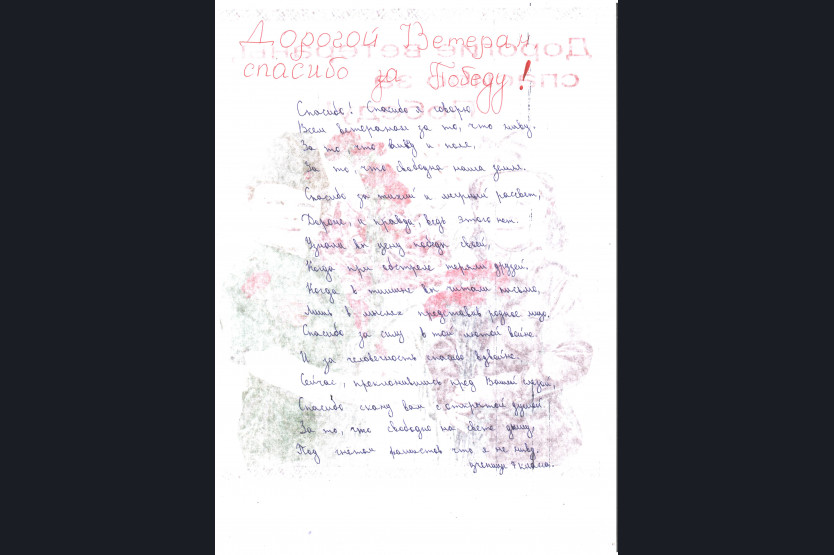 Дорогой Ветеран
спасибо за Победу!
Спасибо! Спасибо я говорю
Всем ветеранам за то, что живу.
За то, что вижу и поля,
За то, что свободна наша земля.
Спасибо за тихий и мирный рассвет,
Дороже, и правда, ведь этого нет.
Узнали вы цену победы своей,
Когда при обстреле теряли друзей.
Когда в тишине вы читали письмо,
Лишь в мыслях представив родное лицо.
Спасибо за силу в той лютой войне.
И за человечность спасибо вдвойне.
Сейчас, преклонившись пред Вашей
Спасибо скажу вам с открытой душой
За то, что свободно на свете дышу,
Под гнетом фашистов что я не живу.
ученица 7 класса.